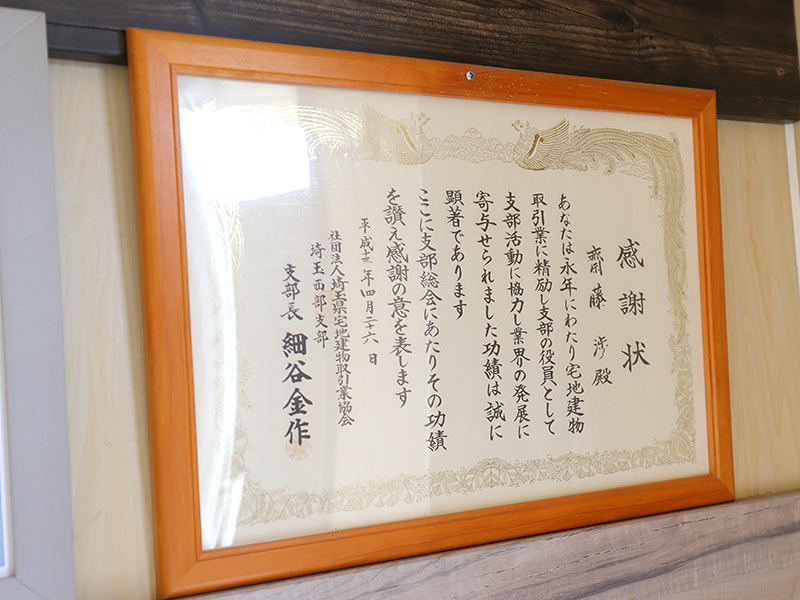 感謝状
齊藤 渉 殿
あなたは永年にわたり宅地建物
取引業に精励し支部の役員として
支部活動に協力し業界の発展に
寄与せられました功績は誠に
顕著であります
ここに支部総会にあたりその功績
を讃え感謝の意を表します
平成十二年四月二十六日
社団法人埼玉県宅地建物取引業協会
埼玉西部支部
支部長 細谷金作